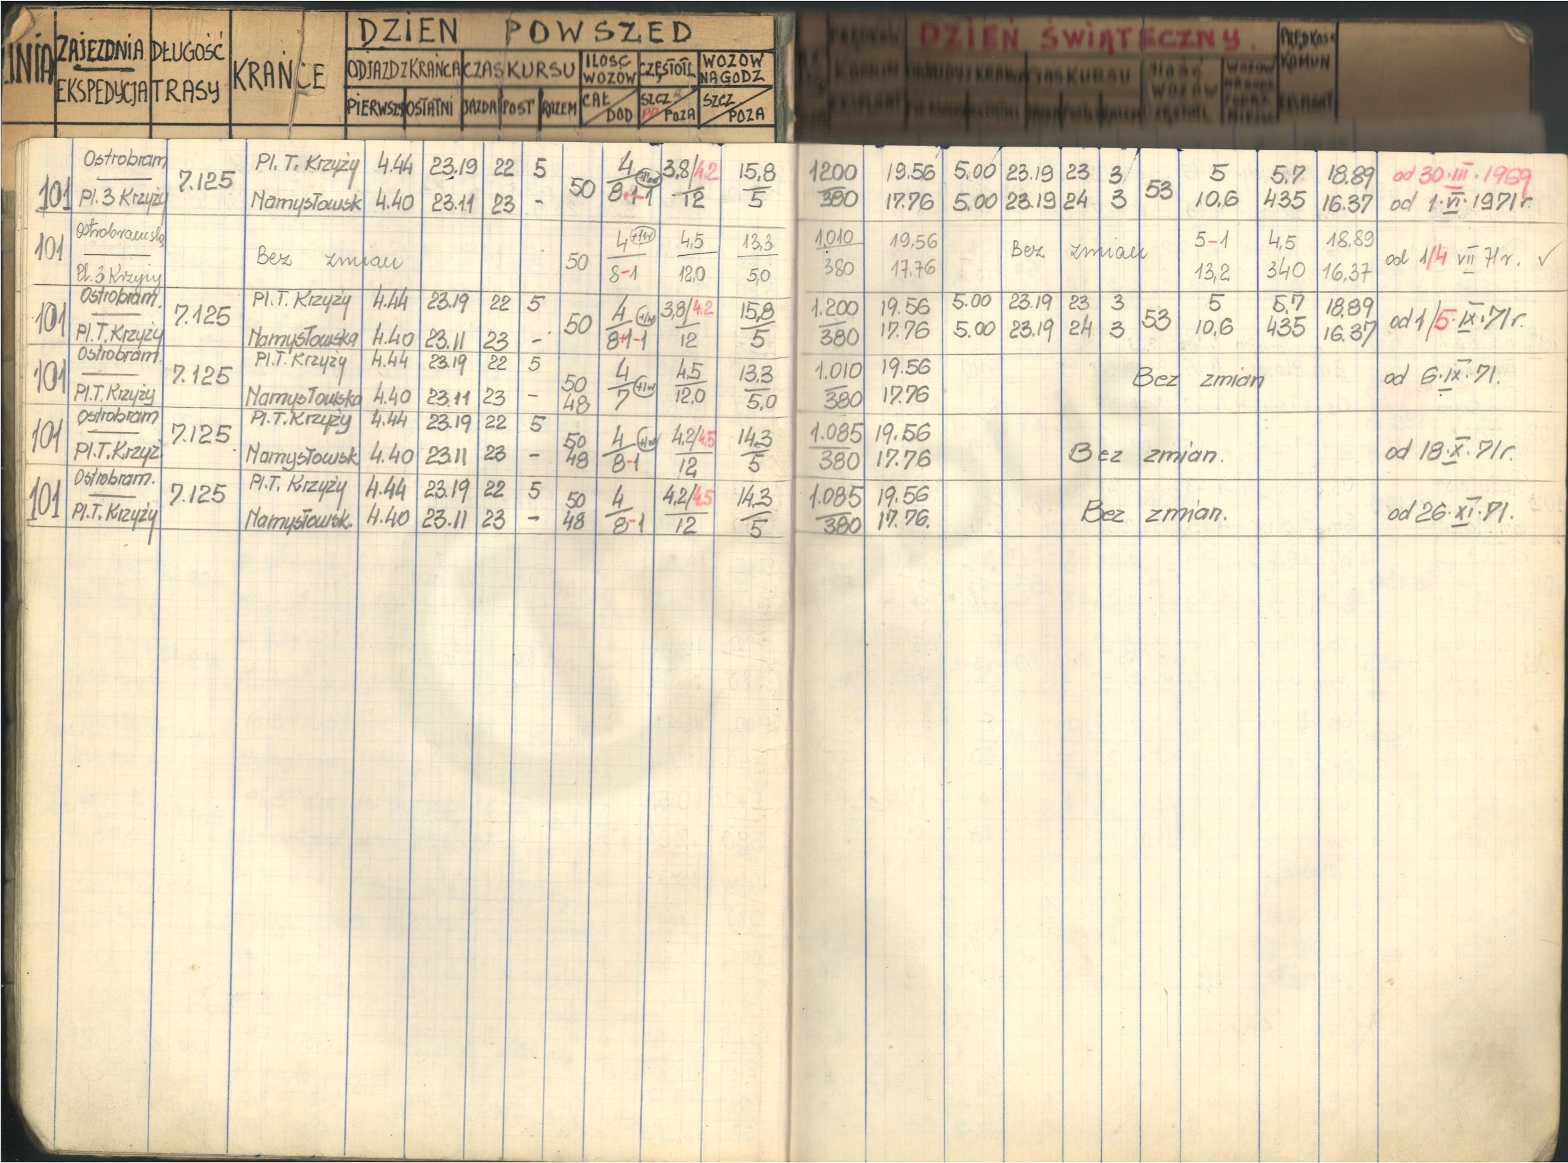 DZIEŃ POWSZED
DZIEŃ ŚWIĄTECZNY.
LINIA ZAJEZDNIA DŁUGOŚĆ KRAŃCE ODJAZD Z KRAŃCA CZAS KURSU ILOŚC WOZÓW CZĘSTOTL WOZÓW NA GODZ
EKSPEDYCJA TRASY PIERWSZY OSTATNI JAZDA POST RAZEM CAŁ/DOD SZCZ/POZA SZCZ/POZA
Ostrobram Pl. T. Krzyży 4.44 23.19 22 5 4 3,8/4.2 15,8 1200 19.56 5.00 23.19 23 3 5 5,7 18.89 od 30.III.1969
101 7.125 50 53
Pl. 3 Krzyży Namysłowsk 4.40 23.11 23 - 8+1-1 12 5 380 17.76 5.00 23.19 24 3 10,6 435 16.37 od 1.VI.1971r.
Ostrobramska 4 4,5 13,3 1.010 19,56 5-1 4,5 18.89
101 Bez zmian 50 Bez zmian od 1/4 VII 71r. ✓
Pl. 3 Krzyży 8-1 12,0 5,0 380 17,76 13,2 340 16,37
Ostrobram. Pl.T. Krzyży 4.44 23.19 22 5 4 3,8/4.2 15,8 1.200 19.56 5.00 23.19 23 3 5 5,7 18.89
101 7.125 50 53 od 1/5.IX.71r.
Pl.T.Krzyży Namysłowska 4.40 23.11 23 - 8+1-1 12 5 380 17.76 5.00 23.19 24 3 10,6 435 16.37
Ostrobram. Pl.T. Krzyży 4.44 23.19 22 5 4 4.5 13,3 1.010 19.56
101 7.125 50 Bez zmian od 6.IX.71.
Pl.T.Krzyży Namysłowska 4.40 23.11 23 - 48 7 12.0 5,0 380 17.76
Ostrobram Pl.T.Krzyży 4.44 23.19 22 5 4 4.2/4.5 14,3 1.085 19.56
101 7.125 50 Bez zmian. od 18.X.71r.
Pl.T.Krzyż Namysłowsk 4.40 23.11 23 - 48 8-1 12 5 380 17.76
Ostrobram. Pl.T. Krzyży 4.44 23.19 22 5 4 4,2/4.5 14,3 1.085 19.56
101 7.125 50 Bez zmian. od 26.XI.71.
Pl.T. Krzyży Namysłowsk. 4.40 23.11 23 - 48 8-1 12 5 380 17.76.